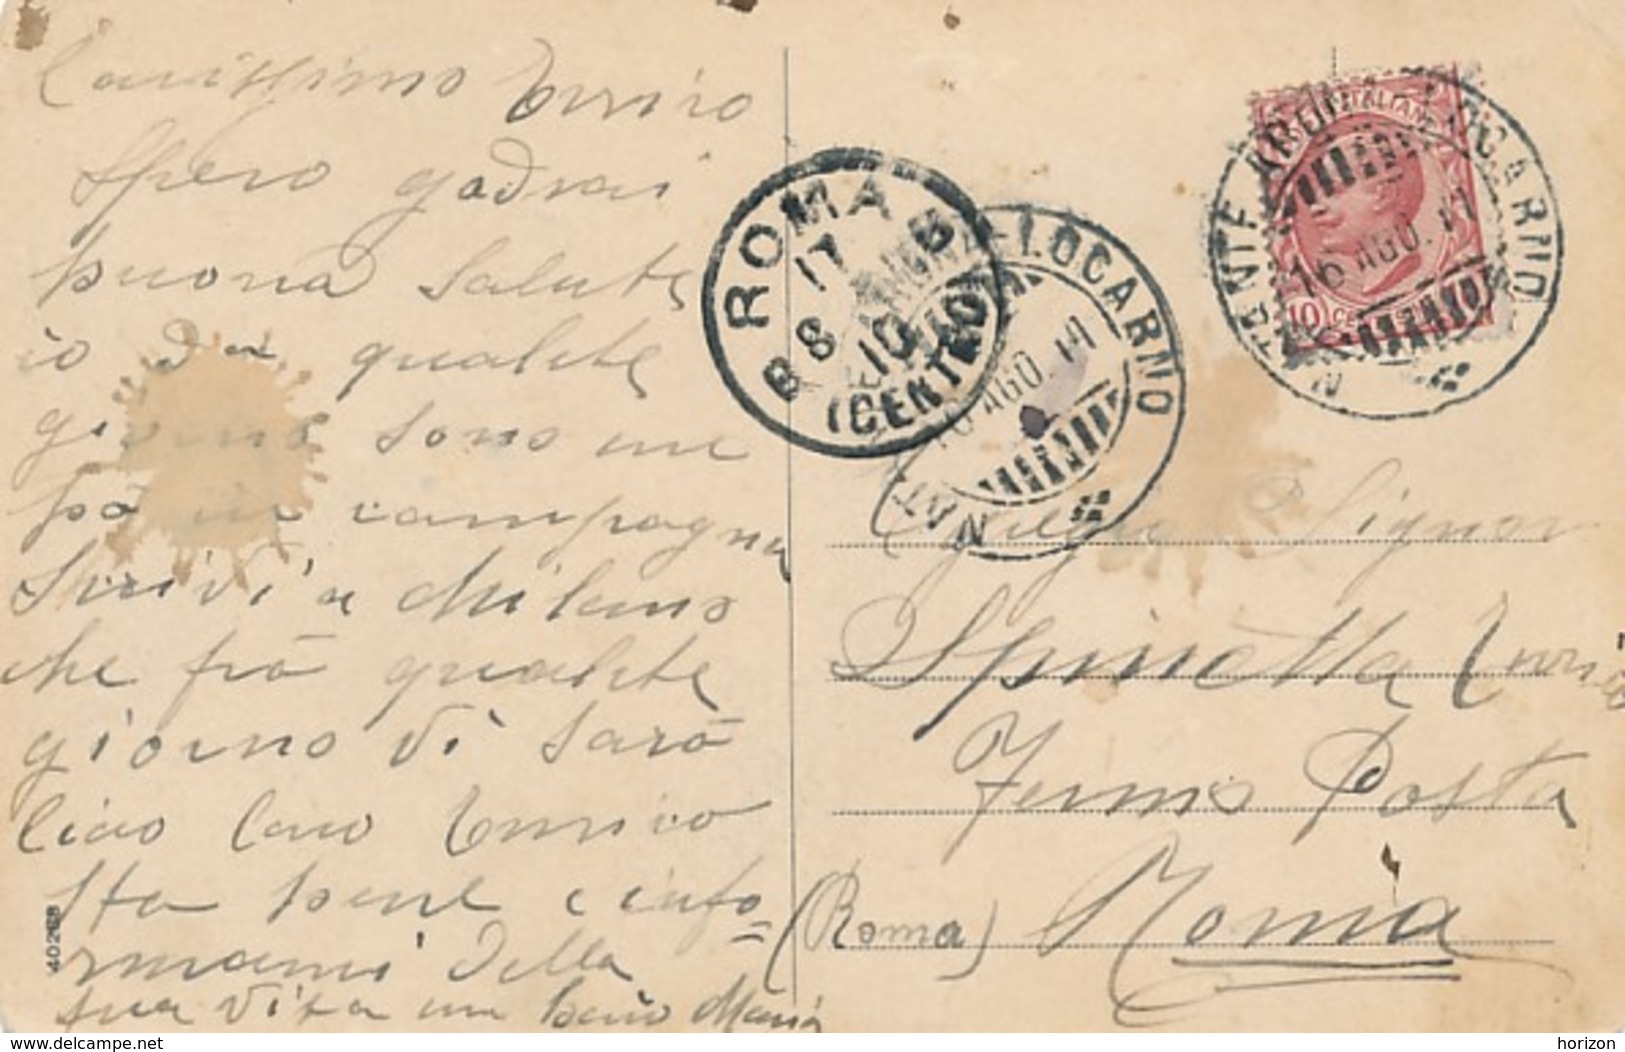 Carissimo Enrico
Spero godrai
buona salute
io da qualche
giorno sono un
po in campagna
Scrivi a Milano
che frà qualche
giorno vi sarò
Ciao Caro Enrico
Sta bene e info=
rmami della
tua vita un bacio Maria
40268
ROMA
17
8
8 10
(CENTRO)
LOCARNO
16 AGO. 11
NAT
NATANTE ARONA LOCARNO
16 AGO. 11
ITALIANE
10 CE
Signor
Spinetta Enrico
Fermo Posta
(Roma) Roma
www.delcampe.net
horizon